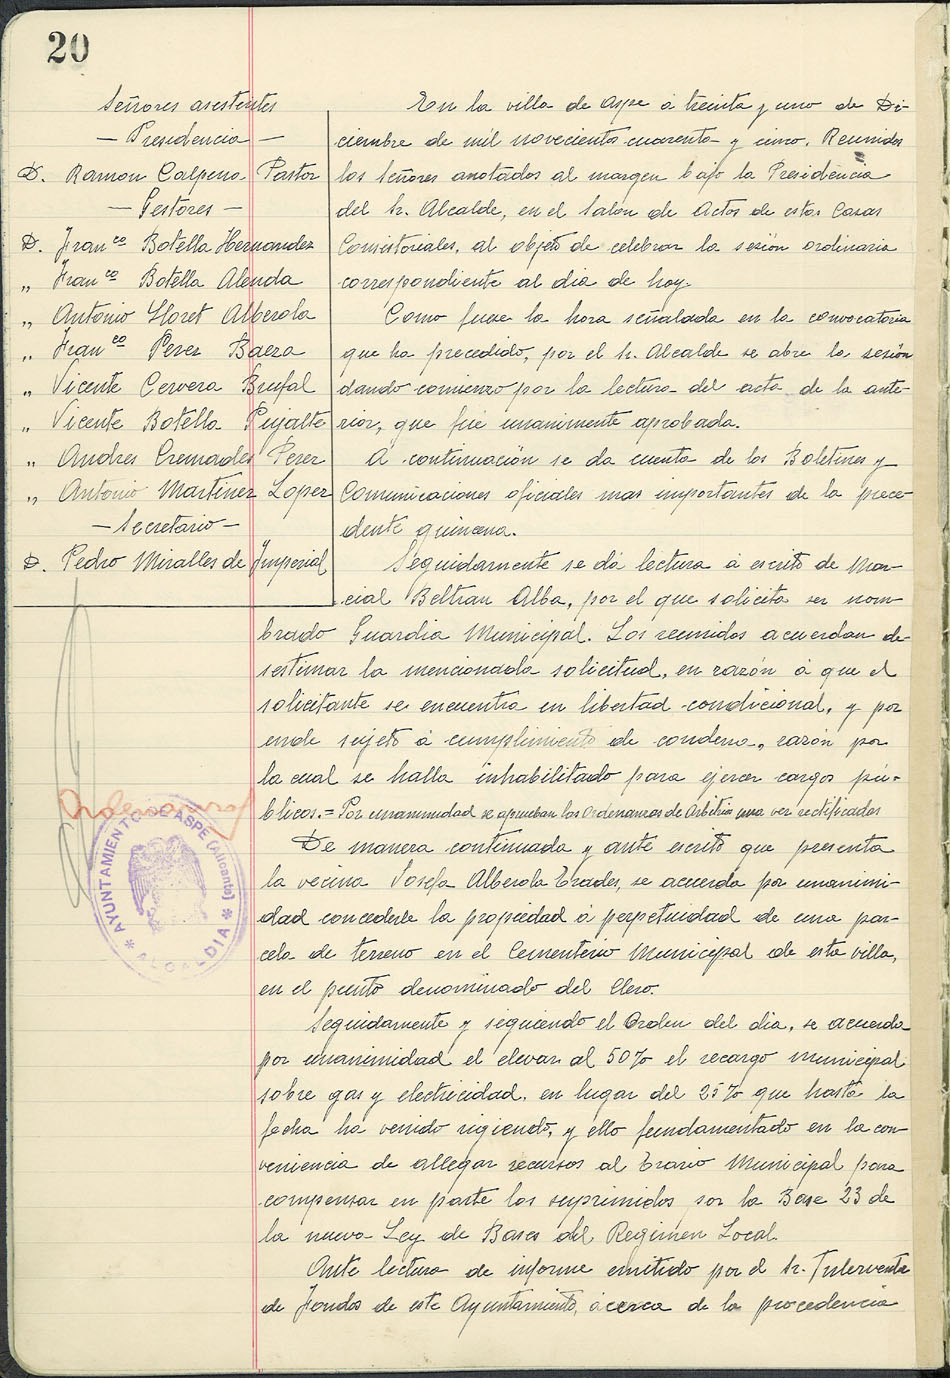 20
Señores asestentes
— Presidencia —
D. Ramon Calpena Pastor
— Gestores —
D. Franco Botella Hernandez
„ Franco Botella Alenda
„ Antonio Lloret Alberola
„ Franco Perez Baeza
„ Vicente Cervera Brufal
„ Vicente Botella Pujalte
„ Andres Cremades Perez
„ Antonio Martinez Lopez
— Secretario —
D. Pedro Miralles de Imperial
En la villa de Aspe á treinta y uno de Di-
ciembre de mil novecientos cuarenta y cinco. Reunidos
los Señores anotados al margen bajo la Presidencia
del Sr. Alcalde, en el Salon de Actos de estas Casas
Consistoriales, al objeto de celebrar la sesión ordinaria
correspondiente al dia de hoy.
Como fuese la hora señalada en la convocatoria
que ha precedido, por el Sr. Alcalde se abre la sesión
dando comienzo por la lectura del acta de la ante-
rior, que fué unanimente aprobada.
A continuación se da cuenta de los Boletines y
Comunicaciones oficiales mas importantes de la prece-
dente quincena.
Seguidamente se dá lectura á escrito de Mar-
cial Beltran Alba, por el que solicita ser nom-
brado Guardia Municipal. Los reunidos acuerdan de-
sestimar la mencionada solicitud, en razón á que el
solicitante se encuentra en libertad condicional, y por
ende sujeto á cumplimiento de condena, razón por
la cual se halla inhabilitado para ejercer cargos pú-
blicos.= Por unanimidad se aprueban las Ordenanzas de Arbitrios una vez rectificadas
De manera continuada y ante escrito que presenta
la vecina Josefa Alberola Erades, se acuerda por unanimi-
dad concederle la propiedad á perpetuidad de una par-
cela de terreno en el Cementerio Municipal de esta villa,
en el punto denominado del Clero.
Seguidamente y siguiendo el Orden del dia, se acuerda
por unanimidad el elevar al 50% el recargo municipal
sobre gas y electricidad, en lugar del 25% que hasta la
fecha ha venido rigiendo, y ello fundamentado en la con-
veniencia de allegar recursos al Erario Municipal para
compensar en parte los suprimidos por la Base 23 de
la nueva Ley de Bases del Regimen Local.
Ante lectura de informe emitido por el Sr. Interventor
de Fondos de este Ayuntamiento, ácerca de la procedencia
Ordenanzas
AYUNTAMIENTO DE ASPE (Alicante)
* ALCALDIA *